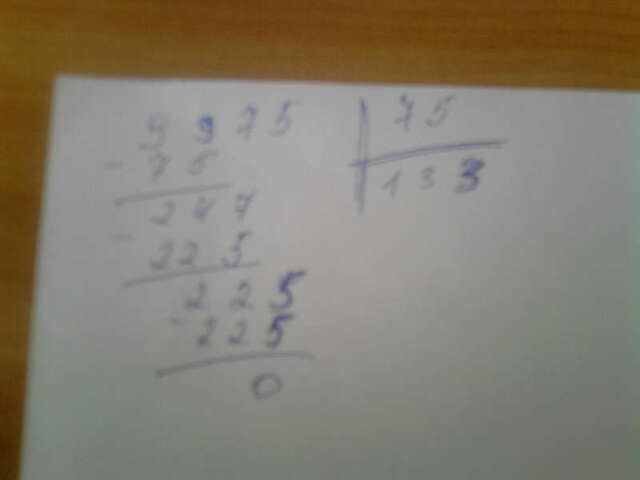 9975 75
- 75 133
247
- 225
225
- 225
0